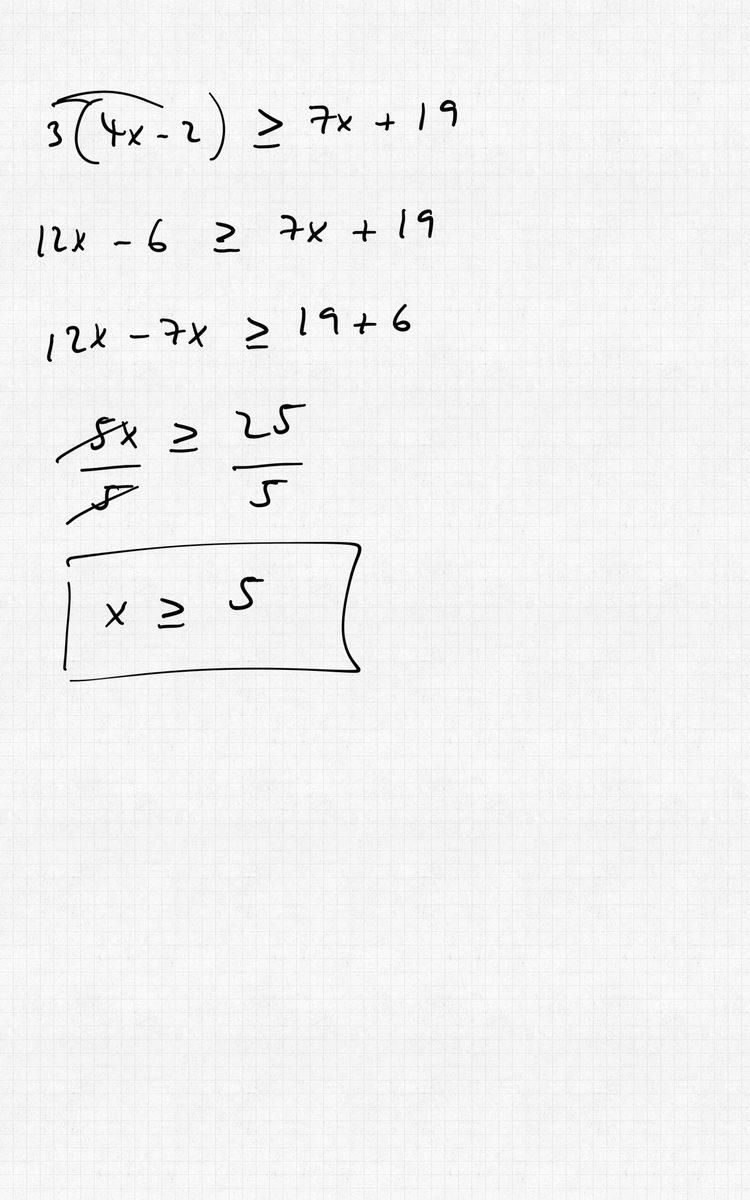 3(4x - 2) ≥ 7x + 19
12x - 6 ≥ 7x + 19
12x - 7x ≥ 19 + 6
5x/5 ≥ 25/5
x ≥ 5